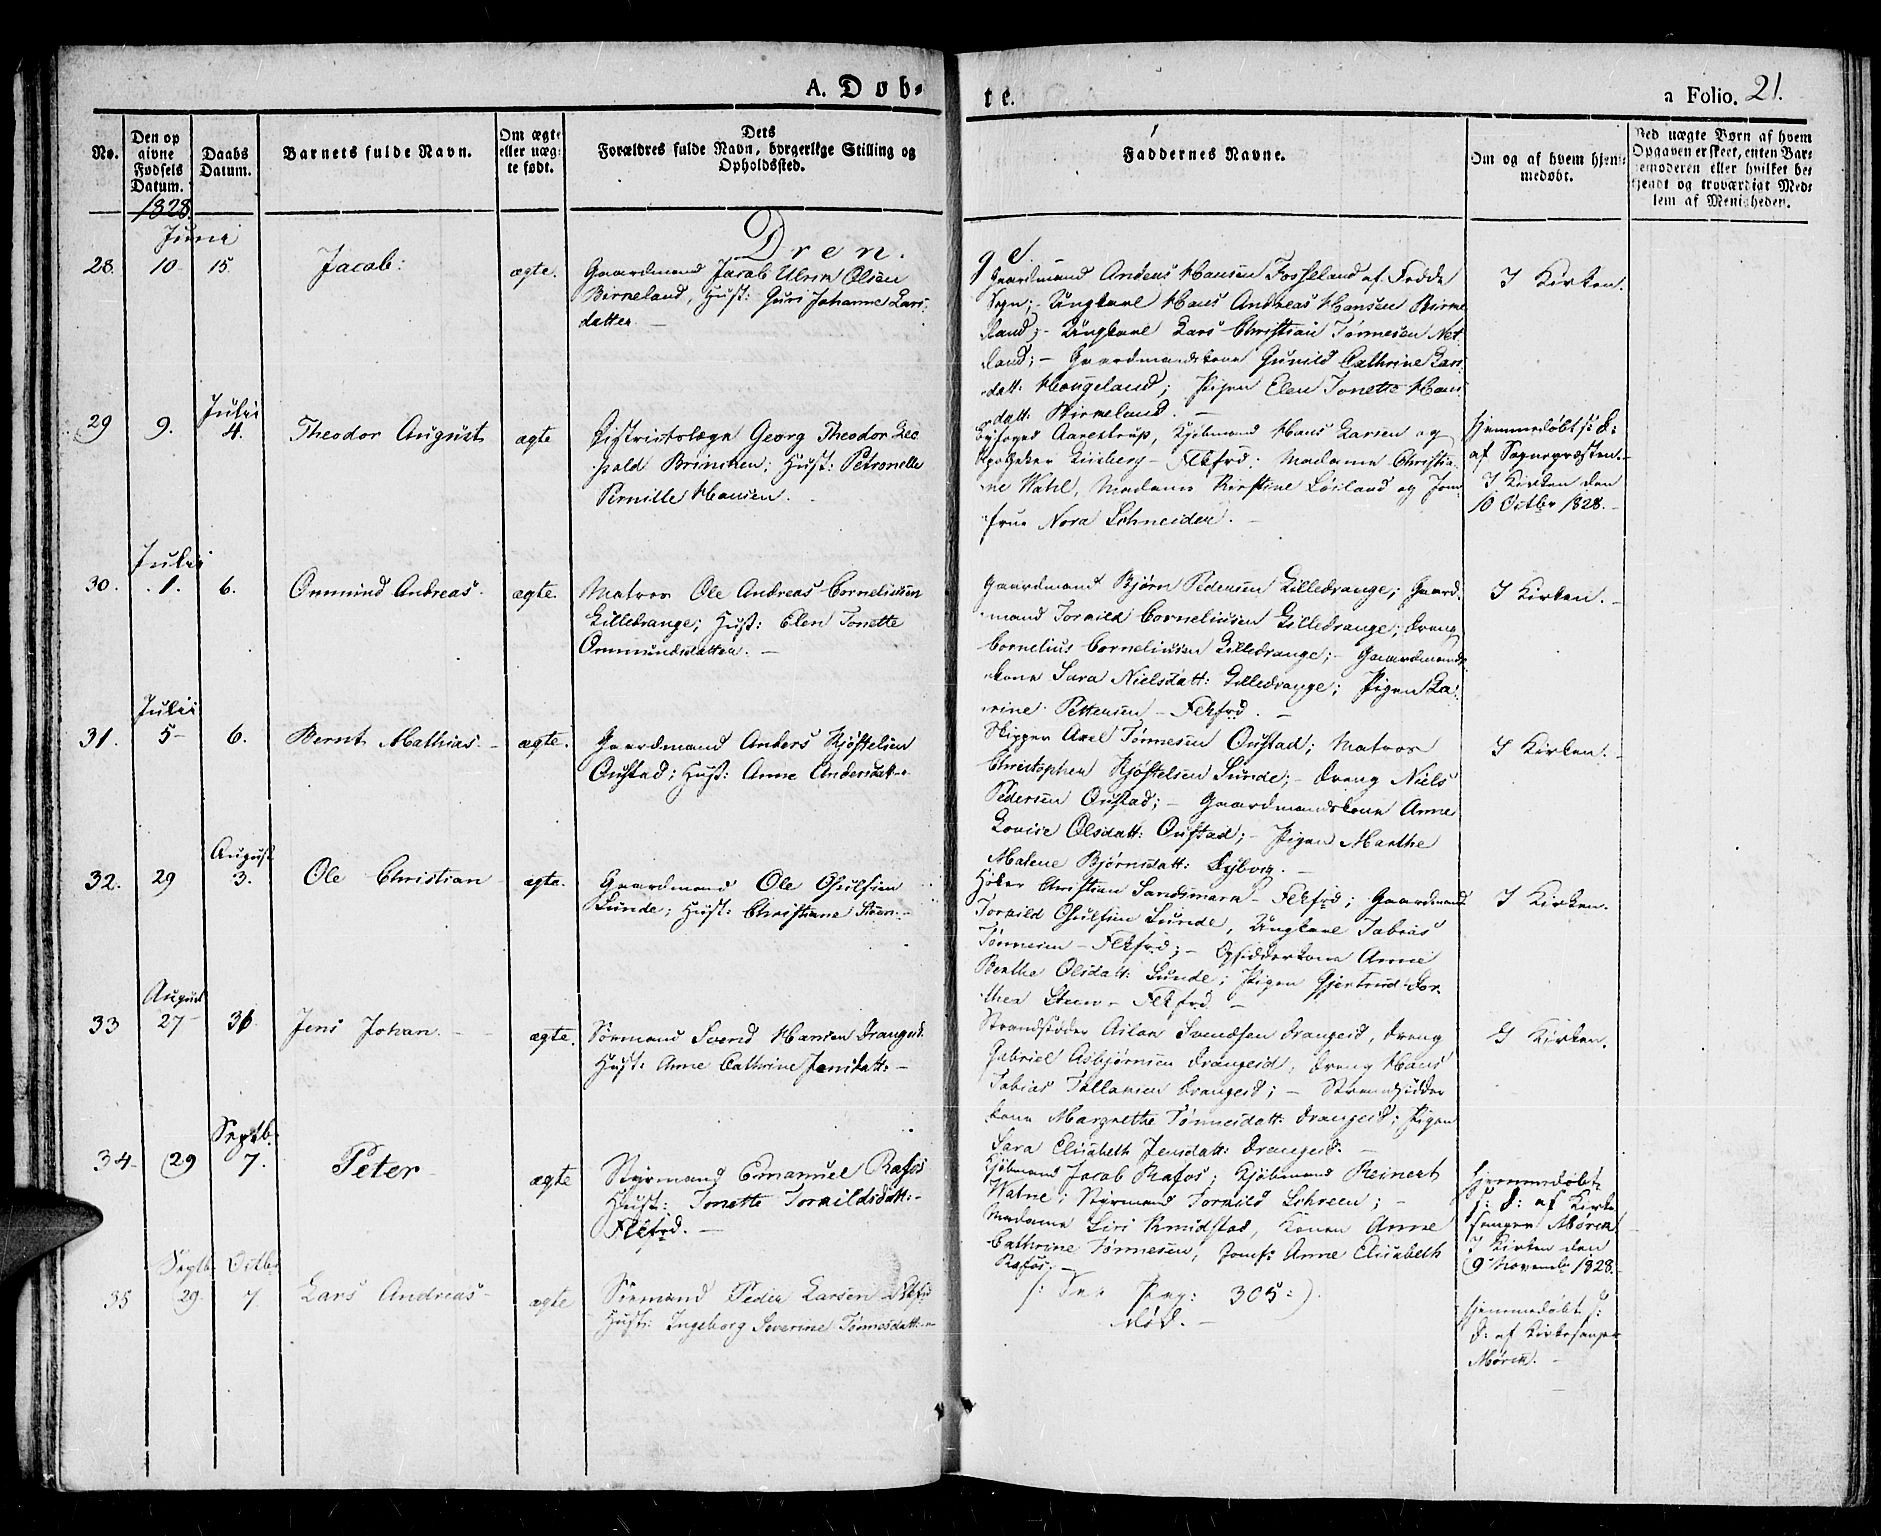 A. Døb-
te.
a Folio. 21.
No.
Den op
givne
Fødsels
Datum.
Daabs
Datum.
Barnets fulde Navn.
Om ægte
eller uæg-
te født.
Dets
Forældres fulde Navn, borgerlige Stilling og
Opholdssted.
Faddernes Navne.
Om og af hvem hjem-
medøbt.
Ved uægte Børn af hvem
Opgaven er skeet, enten Bar-
nemoderen eller hvilket be-
kjendt og troværdigt Med-
lem af Menigheden.
1828
Drenge.
Junii
28. 10 15. Jacob: ægte.
Gaardmand Jacob Ulrin Olsen
Birkeland, Hust: Guri Johanne Lars-
datter —
Gaardmand Anders Hansen Fosseland af Fedde
Sogn; - Ungkarl Hans Andreas Hansen Birke-
land; - Ungkarl Lars Christian Tønnesen Net-
land; - Gaardmandskone Gunild Cathrine Lars-
datt: Haugeland; Pigen Elen Tonette Hans-
datt: Birkeland. —
I Kirken.
Julii
29 9. 4. Theodor August ægte
Districtslæge Georg Theodor Leo-
pold Brinchen; Hust: Petronelle
Pernille Hansen.
Byfoged Aarestrup, Kjøbmand Hans Larsen og
Apotheker Liisberg - Flkfrd; Madame Christia-
ne Wahl, Madame Kirstine Løiland og Jom-
frue Nora Schneider. —
hjemmedøbt s: d:
af Sognepræsten. -
I Kirken den
10 Octbr 1828. -
Julii
30. 1. 6. Ommund Andreas. ægte.
Matros Ole Andreas Corneliusen
Lilledrange; Hust: Elen Tonette
Ommundsdatter. —
Gaardmand Bjørn Pedersen Lilledrange; Gaard-
mand Torkild Corneliusen Lilledrange; Dreng
Cornelius Corneliusen Lilledrange; - Gaardmands-
kone Sara Nielsdatt: Lilledrange; Pigen La-
rine Pettersen - Flkfrd. —
I Kirken. -
Julii
31. 5 6. Bernt Mathias. - ægte.
Gaardmand Anders Kjøstelsen
Oustad; Hust: Anne Andersdatt -
Skipper Axel Tønnesen Oustad; Matros
Christopher Kjøstelsen Sunde; - Dreng Niels
Pedersen Oustad; - Gaardmandskone Anne
Lovise Olsdatt: Oustad; - Pigen Marthe
Malene Bjørnsdatt: Dybvig. -
I Kirken. -
August
32. 29 3. Ole Christian ægte.
Gaardmand Ole Osulfsen
Sunde; Hust: Christiane Steen. -
Høker Christian Sandsmark - Flkfrd; Gaardmand
Torkild Osulfsen Sunde, Ungkarl Tobias
Tønnesen - Flkfrd; - Opsidderkone Anne
Berthe Olsdatt: Sunde; Pigen Gjertrud Dor-
thea Steen - Flkfrd —
I Kirken.
August
33 27 31. Jens Johan. - ægte.
Sømand Svend Hansen Drangeid.
Hust: Anne Cathrine Jensdatt: -
Strandsidder Ailan Svendsen Drangeid, Dreng
Gabriel Asbjørnsen Drangeid, Dreng Hans
Tobias Tollaksen Drangeid; - Strandsidder
kone Margrethe Tønnesdatt: Drangeid; Pigen
Sara Elisabeth Jensdatt: Drangeid. -
I Kirken.
Septb.
34. 29 7. Peter ægte
Styrmand Emanuel Rafos
Hust: Tonette Torkildsdatt: -
Flkfrd. -
Kjøbmand Jacob Rafos; Kjøbmand Reinert
Watne; Styrmand Torkild Schreen; -
Madame Siri Knudstad, Konen Anne
Cathrine Tønnesen, Jomfr: Anne Elisabeth
Rafos. —
hjemmedøbt
s: d: af Kirke-
sanger Mørch
I Kirken den
9 Novembr 1828. -
Septb. Octbr
35 29. 7 Lars Andreas ægte
Sømand Peder Larsen Flkfrd
Hust: Ingeborg Severine Tønnesdatt: -
/: See Pag: 305 :/.
død. -
hjemmedøbt s:
d: af Kirkesanger
Mørch. -